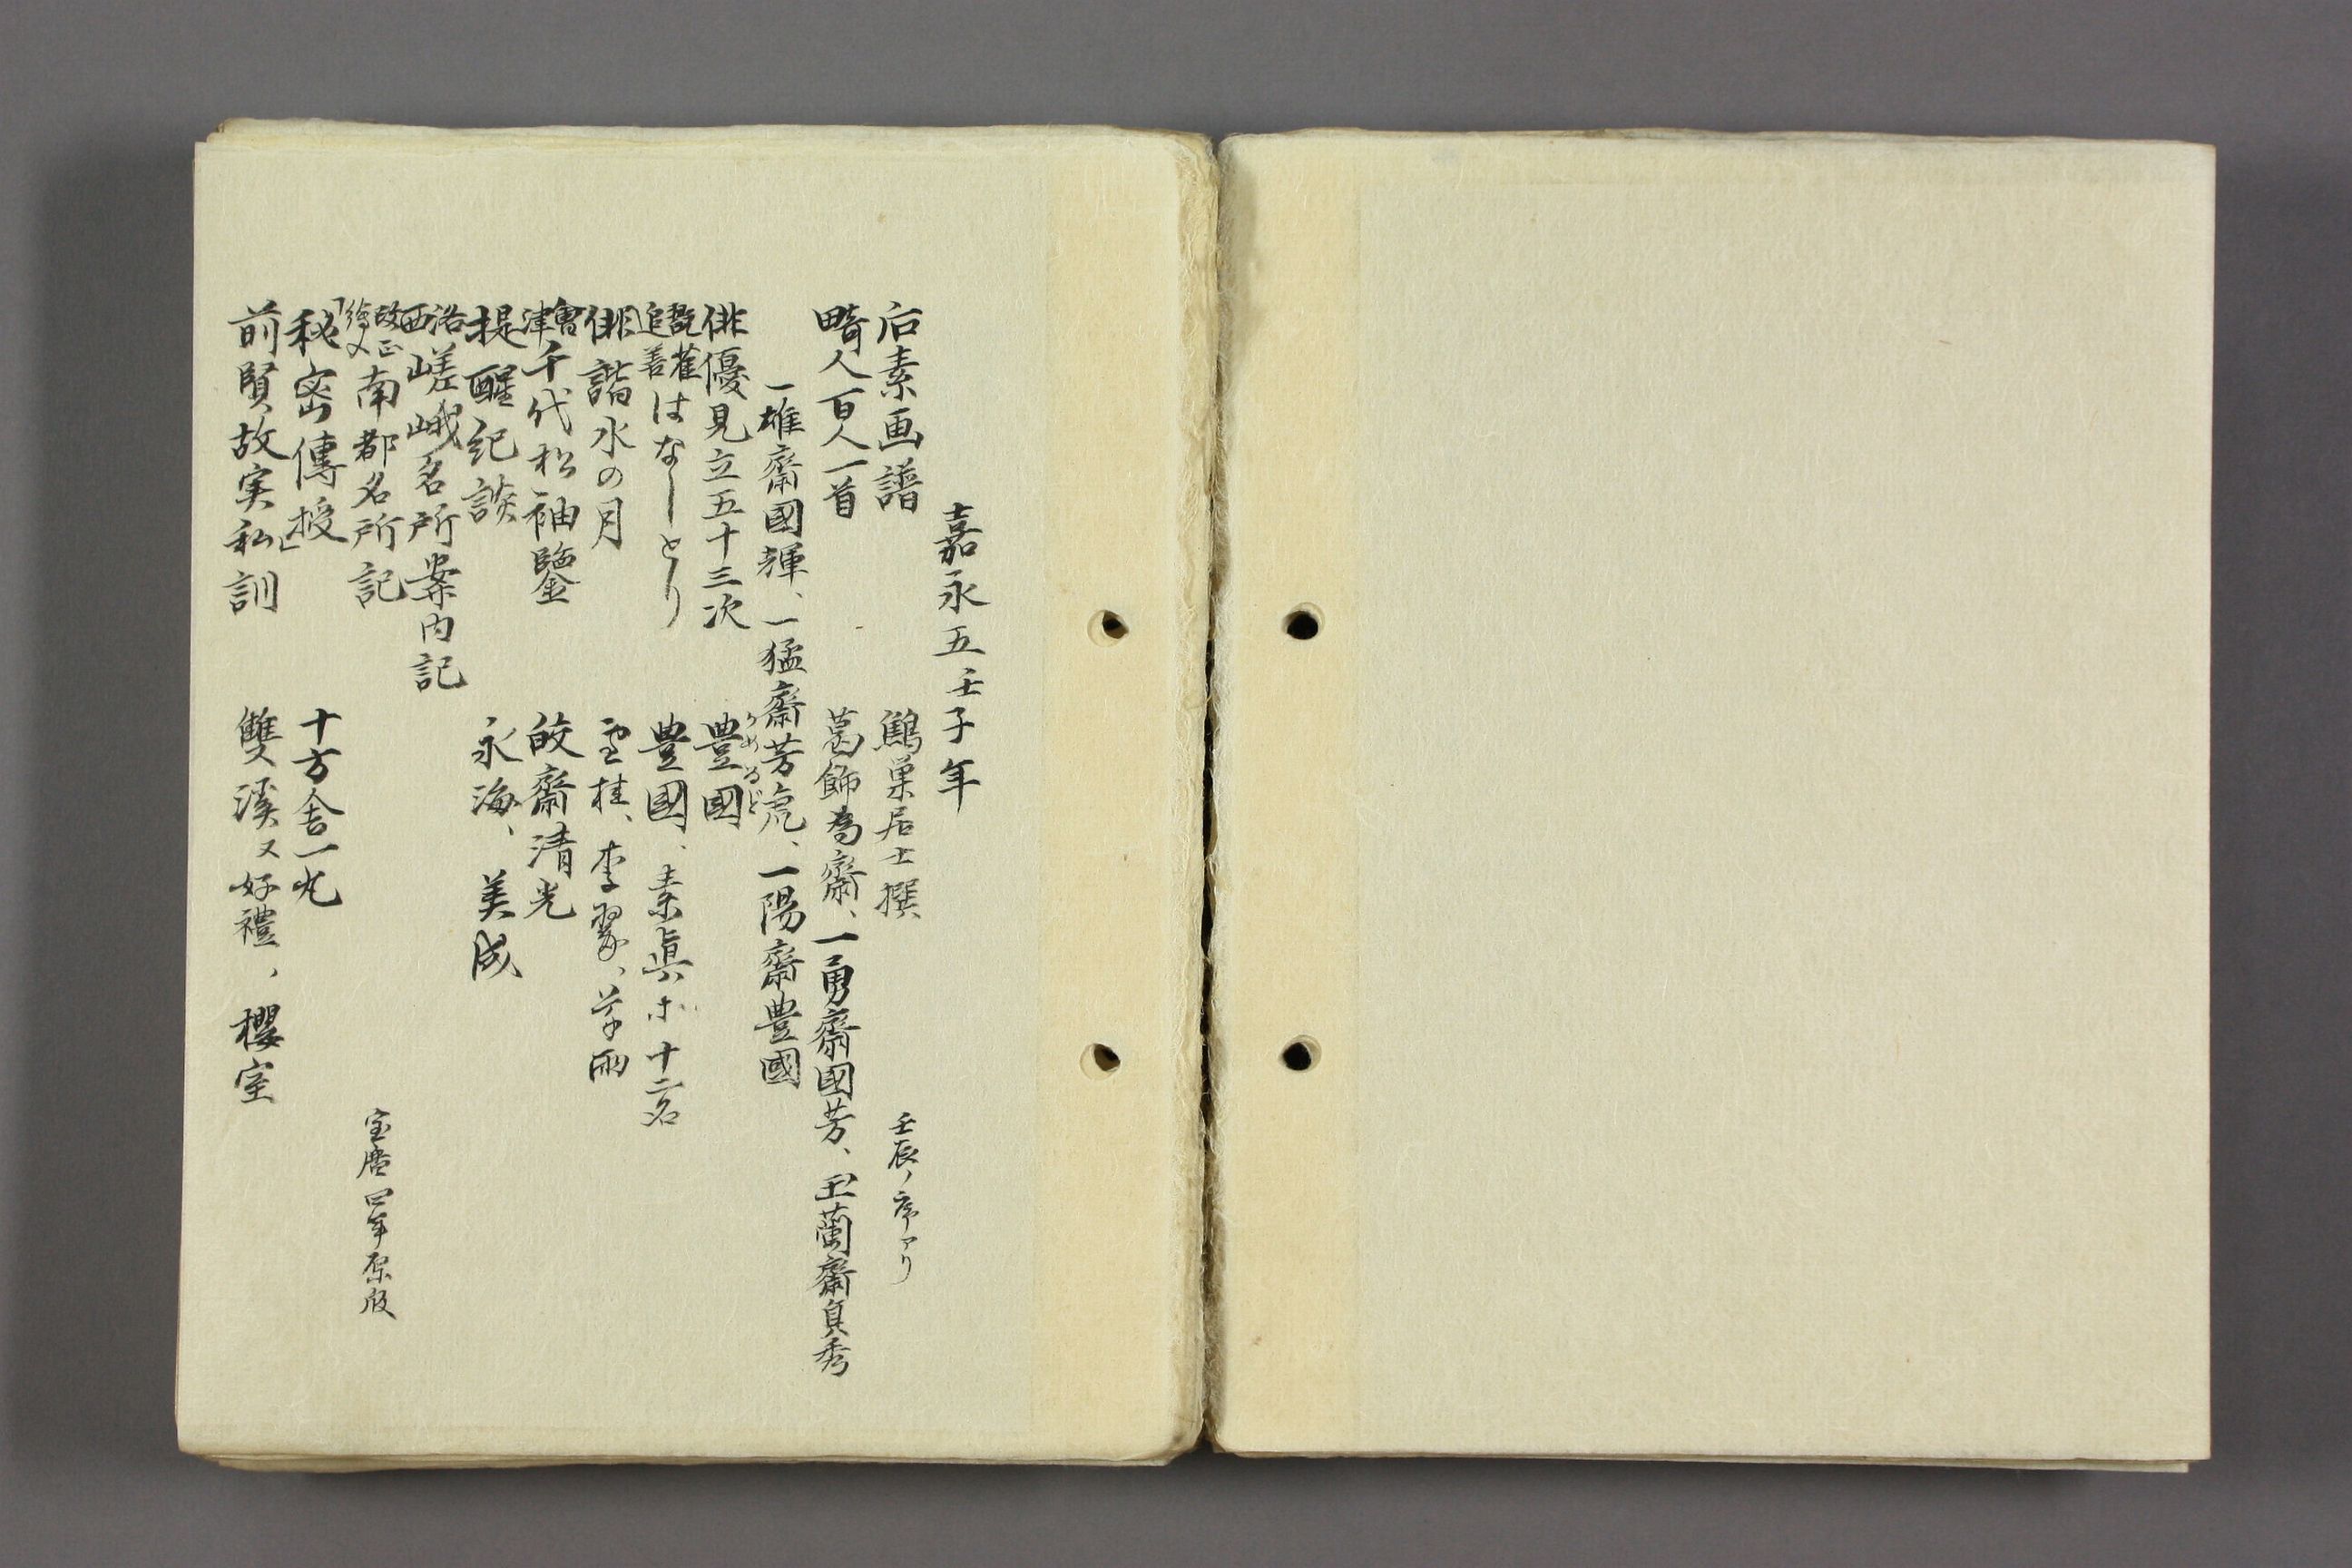 嘉永五壬子年
后素画譜 鷦巣居士撰 壬辰ノ序アリ
畸人百人一首 葛飾為齋、一勇齋國芳、玉蘭齋貞秀
一雄齋國輝、一猛齋芳虎、一陽齋豊國
俳優見立五十三次 豊國
追善はなしとり 豊國、素真ホカ十二名
俳諧水の月 雪桂、李翠、草雨
會津千代松袖鑒 皎齋清光
提醒紀談 永海、美成
洛西嵯峨名所案内記
改正絵入南都名所記 宝暦四年原版
「秘密傳授」 十方舎一丸
前賢故実私訓 雙溪又好禮、櫻室